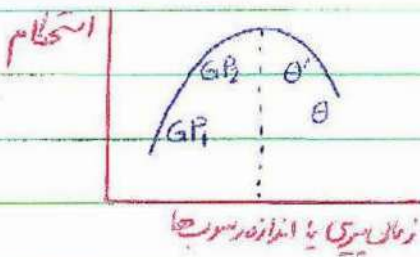 استحکام
GP₂ θ′
θ
GP₁
زمان پیری یا اندازه رسوب‌ها